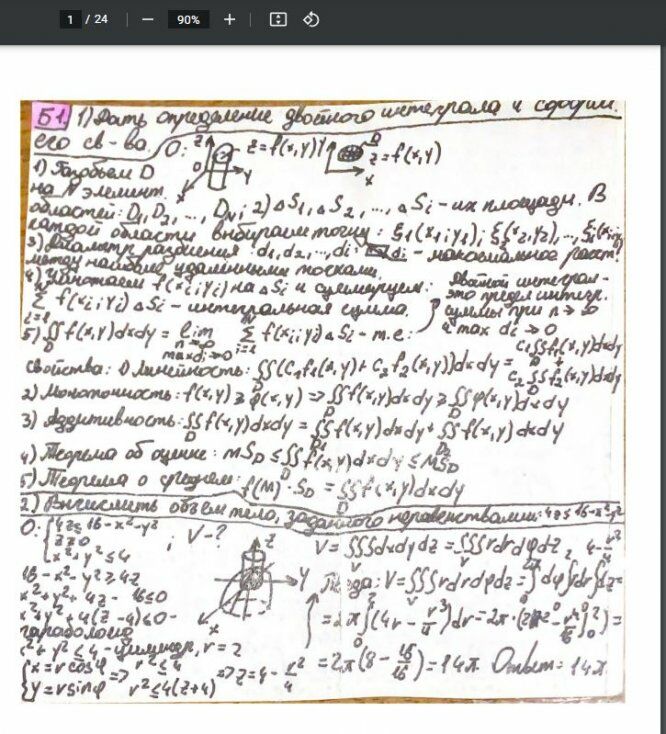 1 / 24 90%
Б1 1) Дать определение двойного интеграла и
его св-ва. О: z = f(x,y) z = f(x,y)
1) Разобьем D
на N элемент.
областей: D₁, D₂, ..., Dₙ; 2) ΔS₁, ΔS₂, ..., ΔSᵢ - их площади. В
каждой области выбираем точку: ξ₁(x₁;y₁); ξ(x₂,y₂), ...,
3) Диаметр разбиения: d₁, d₂, ..., dᵢ; dᵢ - максимальное раст.
между наиболее удаленными точками.
4) f(xᵢ;yᵢ) на ΔSᵢ и суммируем:
Σ f(xᵢ;yᵢ) ΔSᵢ - интегральная сумма.
Двойной интеграл-
это предел интегр.
суммы при n→∞
и max dᵢ→0
5) ∬f(x,y)dxdy = lim Σ f(xᵢ;yᵢ)ΔSᵢ - т.е.
Свойства: 1) Линейность: ∬(C₁f₁(x,y) + C₂f₂(x,y))dxdy = C₁∬f₁(x,y)dxdy + C₂∬f₂(x,y)dxdy
2) Монотонность: f(x,y) ≥ φ(x,y) => ∬f(x,y)dxdy ≥ ∬φ(x,y)dxdy
3) Аддитивность: ∬f(x,y)dxdy = ∬f(x,y)dxdy + ∬f(x,y)dxdy
4) Теорема об оценке: mS_D ≤ ∬f(x,y)dxdy ≤ MS_D
5) Теорема о среднем: f(M)·S_D = ∬f(x,y)dxdy
2) Вычислить объем тела, заданного неравенствами: 4z ≤ 16-x²-y²
О: { 4z ≤ 16-x²-y²
z ≥ 0 ; V-?
x²+y² ≤ 4
16-x²-y² ≥ 4z
x²+y²+4z-16 ≤ 0
x²+y²+4(z-4) ≤ 0 -
параболоид
x²+y² ≤ 4 - цилиндр, r = 2
{ x = r cosφ => r² ≤ 4
y = r sinφ r² ≤ 4(z+4) => z = 4 - r²/4
V = ∭dxdydz = ∭rdrdφdz
Тогда: V = ∭rdrdφdz = ∫dφ∫rdr∫dz =
= 2π∫(4r - r³/4)dr =
= 2π(8 - 16/16) = 14π Ответ: 14π